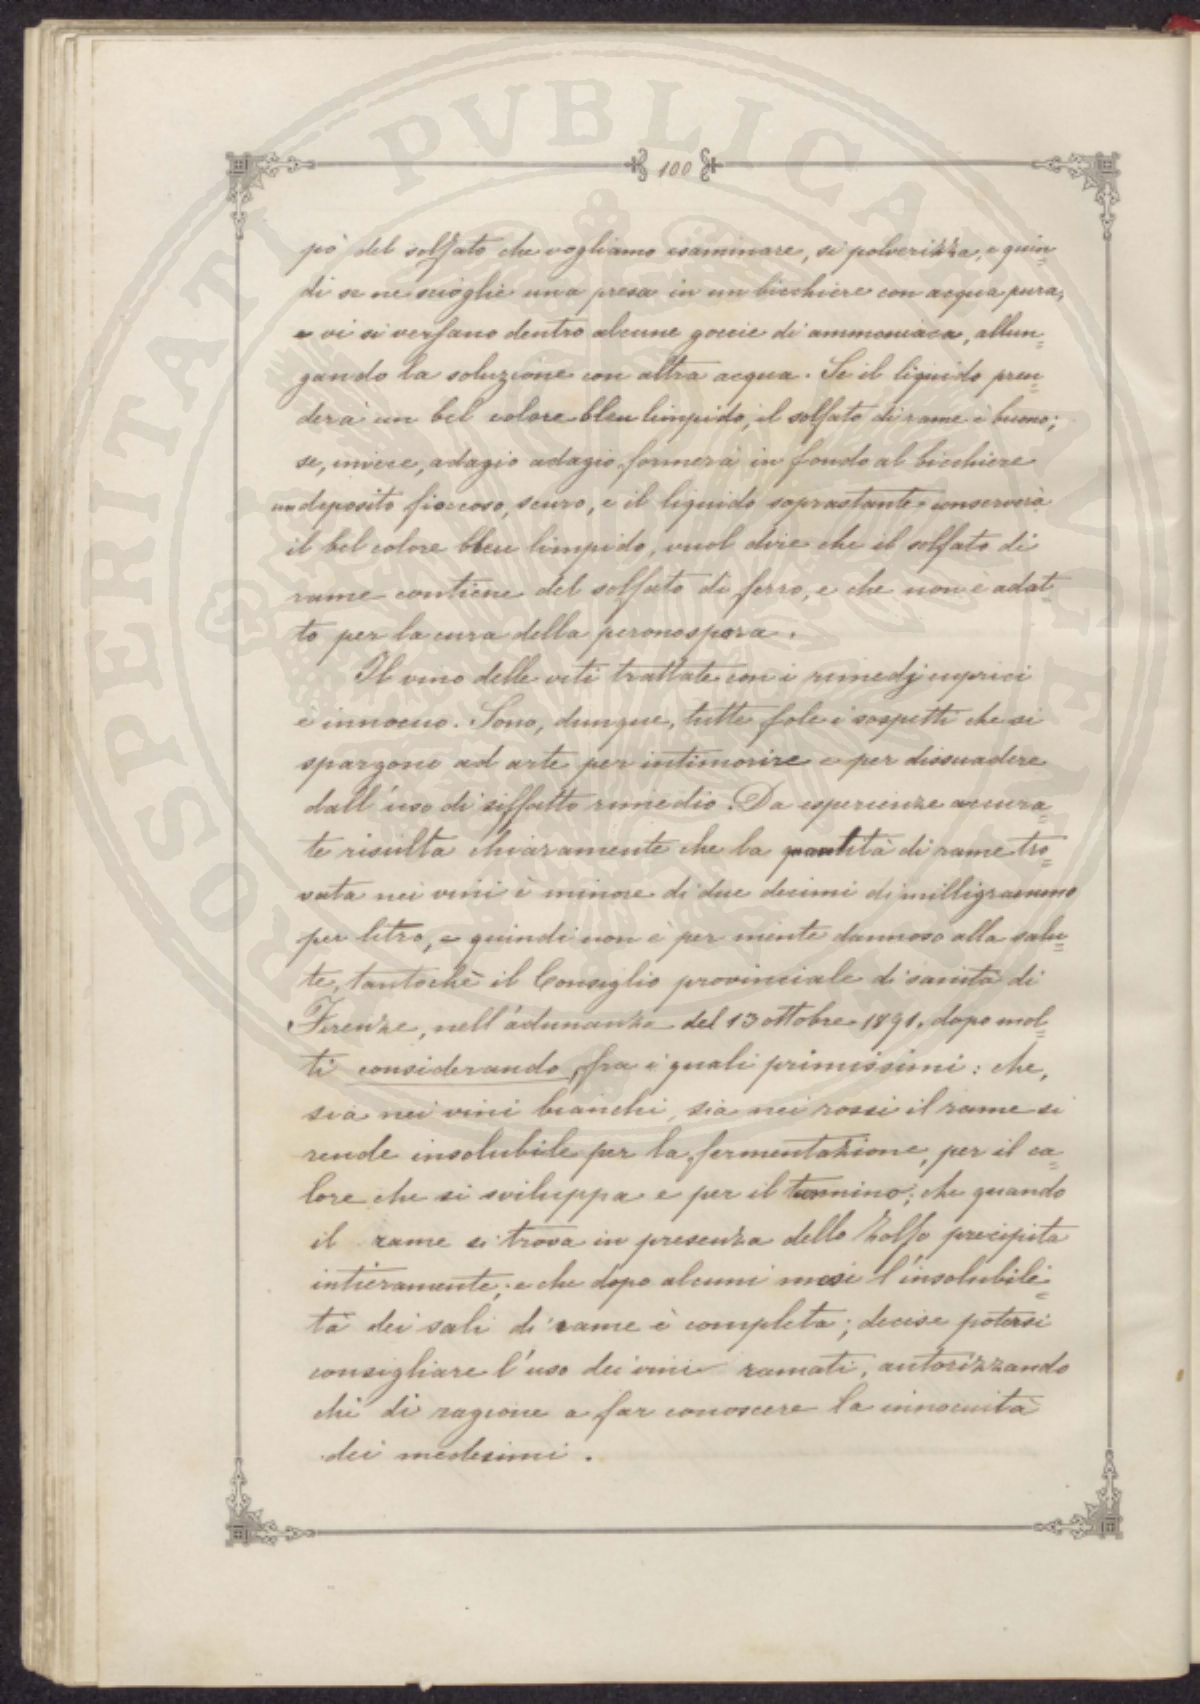 100
pò del solfato che vogliamo esaminare, si polverizza, e quin=
di se ne scioglie una presa in un bicchiere con acqua pura,
e vi si versano dentro alcune goccie di ammoniaca, allun=
gando la soluzione con altra acqua. Se il liquido pren=
derà un bel colore bleu limpido, il solfato di rame è buono;
se, invece, adagio adagio, formerà in fondo al bicchiere
un deposito fioccoso, scuro, e il liquido soprastante conserverà
il bel colore bleu limpido, vuol dire che il solfato di
rame contiene del solfato di ferro, e che non è adat=
to per la cura della peronospora.
Il vino delle viti trattate con i rimedj cuprici
è innocuo. Sono, dunque, tutte fole i sospetti che si
spargono ad arte per intimorire e per dissuadere
dall'uso di siffatto rimedio. Da esperienze accura=
te risulta chiaramente che la quantità di rame tro=
vata nei vini è minore di due decimi di milligrammo
per litro, e quindi non è per niente dannoso alla salu=
te, tantochè il Consiglio provinciale di sanità di
Firenze, nell'adunanza del 13 ottobre 1891, dopo mol=
ti considerando, fra i quali primissimi: che,
sia nei vini bianchi, sia nei rossi il rame si
rende insolubile per la fermentazione, per il ca=
lore che si sviluppa e per il tannino; che quando
il rame si trova in presenza dello Zolfo precipita
intieramente; e che dopo alcuni mesi l'insolubili=
tà dei sali di rame è completa; decise potersi
consigliare l'uso dei vini ramati, autorizzando
chi di ragione a far conoscere la innocuità
dei medesimi.
PROSPERITATI PVBLICAE AVGENDAE